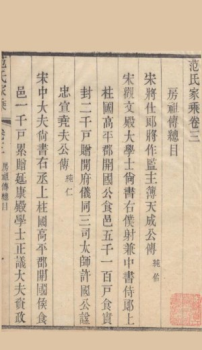 范氏家乘卷三
房祖傳總目
宋將仕郎將作監主薄天成公傳 純佑
宋觀文殿大學士尙書右僕射兼中書侍郎上
柱國高平郡開國公食邑五千一百戸食實
封二千戸贈開府儀同三司太師許國公諡
忠宣堯夫公傳 純仁
宋中大夫尙書右丞上柱國高平郡開國侯食
邑一千戸累贈延康殿學士正議大夫資政
范氏家乘
房祖傳總目